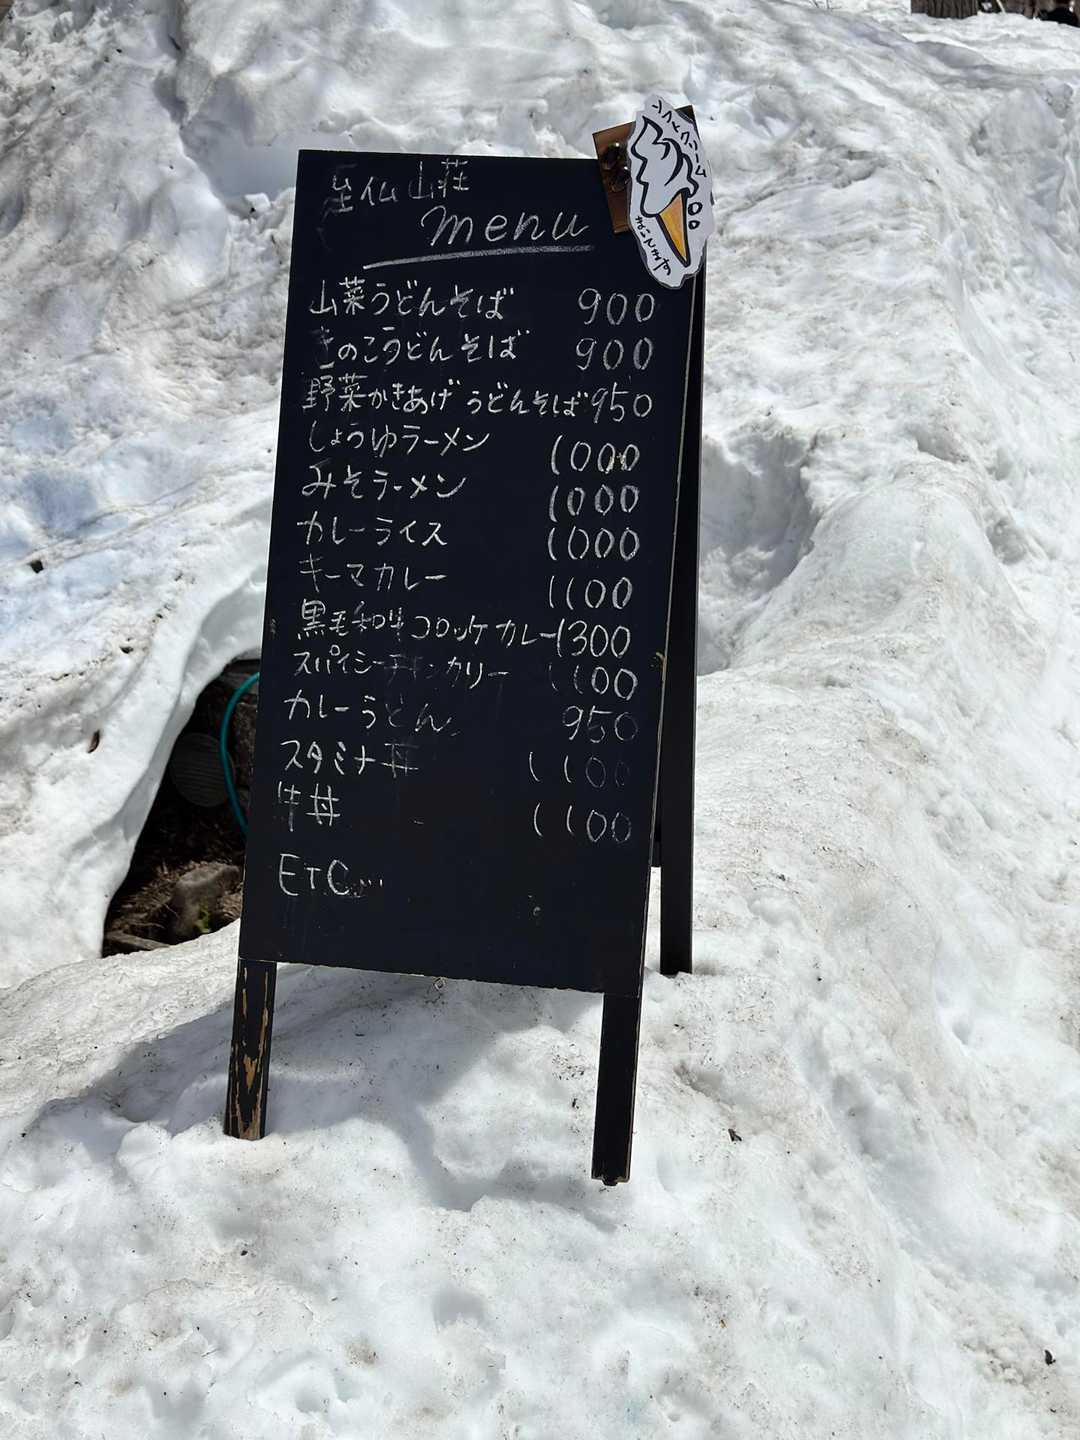 座仏山荘
menu
ソフトクリーム
まいてます
山菜うどんそば 900
きのこうどんそば 900
野菜かきあげうどんそば 950
しょうゆラーメン 1000
みそラーメン 1000
カレーライス 1000
キーマカレー 1100
黒毛和牛コロッケカレー 1300
スパイシーチキンカリー 1100
カレーうどん 950
スタミナ丼 1100
牛丼 1100
ETC...